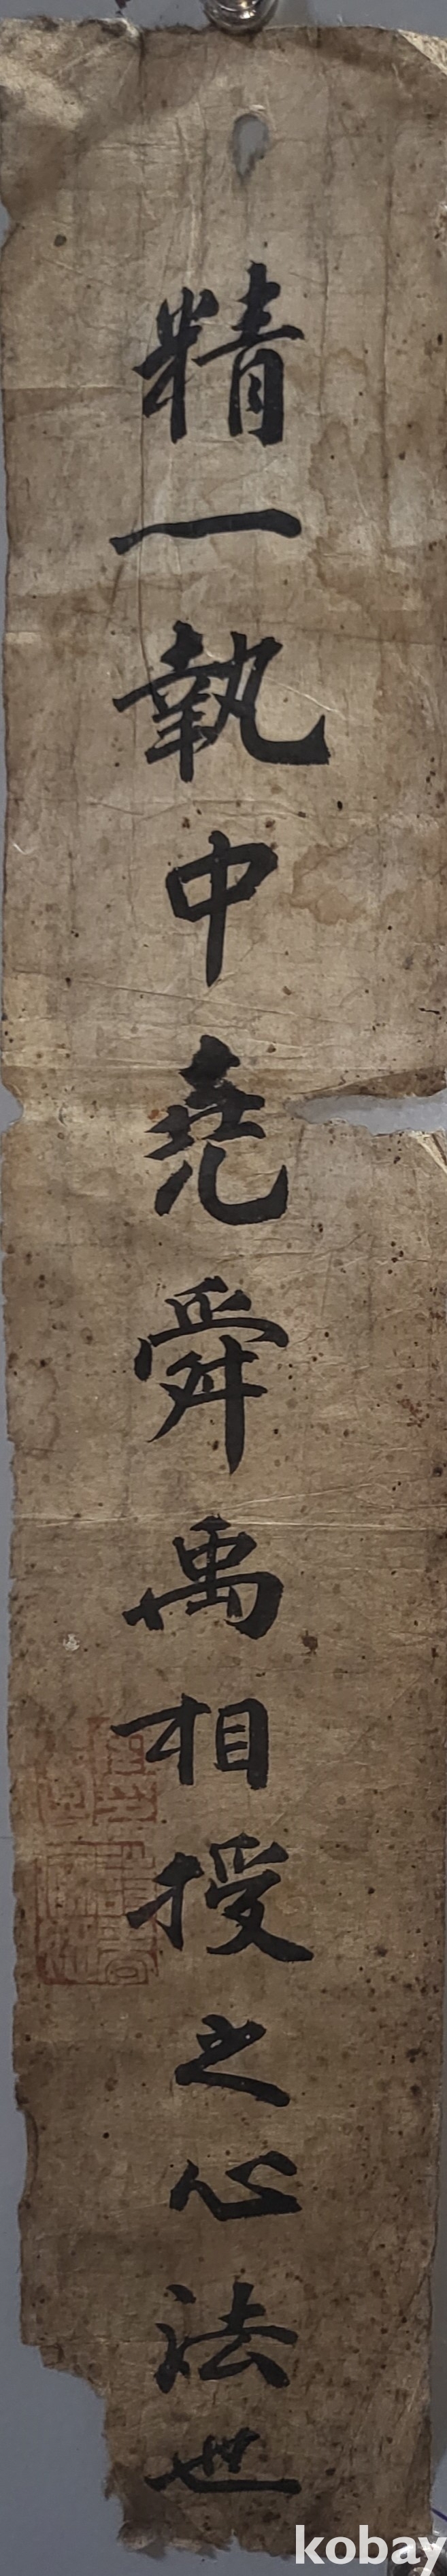 精一執中堯舜禹相授之心法世
kobay